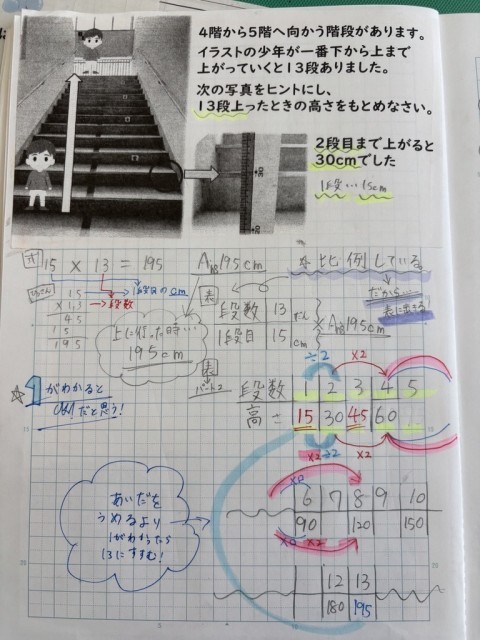 4階から5階へ向かう階段があります。
イラストの少年が一番下から上まで
上がっていくと13段ありました。
次の写真をヒントにし、
13段上ったときの高さをもとめなさい。
2段目まで上がると
30cmでした
1段…15cm
式 15 × 13 = 195 A.195cm
ひっさん
15
×13
45
15
195
→段数
1段目のcm
上に行った時…
195cm
☆比例している。
だから…
表に出そう!
表
段数 13だん
1段目 15cm
A.195cm
表
パート2
÷2 ×2
段数 1 2 3 4 5
高さ 15 30 45 60
×2 ÷2 ×2
☆1がわかると
だと思う!
6 7 8 9 10
90 120 150
あいだを
うめるより
1がわかったら
13にすすむ!
12 13
180 195